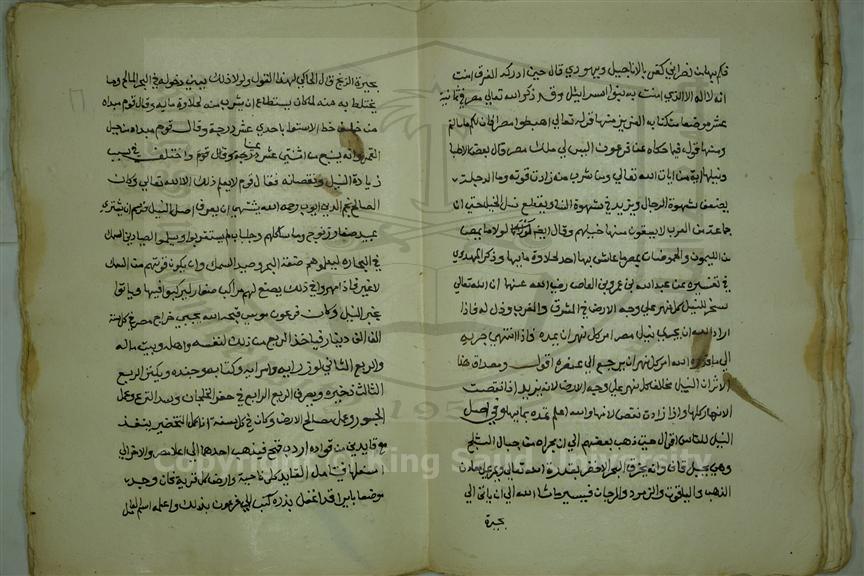 فكم بها من نصراني كفر بالاناجيل ويهودي قال حين ادركه الغرق امنت
انه لا اله الا الذي امنت به بنوا اسرائيل وقد ذكر الله تعالى مصر في ثمانية
عشر موضعا من كتابه العزيز منها قوله تعالى اهبطوا مصرا فان لكم ما سالتم
ومنها قوله فيما حكاه عن فرعون اليس لي ملك مصر قال بعض الاطبا
ونيلها اية من ايات الله تعالى ومن شرب منه زادت قوته وما الدجلة
يضعف شهوة الرجال ويزيد في شهوة النسا ويقطع نسل الخيل حتى ان
جماعة من العرب لا يسقون منها خيلهم وقال لولا ما بمصر
من الليمون والحموضات بمصر ما عاش بها احد لحلاوة مايها وذكر المهدوي
في تفسيره عن عبد الله بن عمرو بن العاص رضي الله عنها ان الله تعالى
سخر للنيل كل نهر على وجه الارض في المشرق والمغرب وذلل له فاذا
اراد الله ان يجري نيل مصر امر كل نهر ان يمده فاذا انتهى جريه
الى ما قدره الله امر كل نهر ان يرجع الى عنصره اقول ومصداق هذا
الاثر ان النيل مخالف كل نهر على وجه الارض لانه يزيد اذا نقصت
الانهار كلها واذا زادت نقص لانها والله اعلم تمده بمايها وفي اصل
النيل للناس اقوال حتى ذهب بعضهم الى ان مجراه من جبال الثلج
وهي بجبل قاف وانه يخرق البحر الاخضر بقدرة الله تعالى ويمر على معادن
الذهب والياقوت والزمرد والمرجان فيسير ما شا الله الى ان ياتي الى
بحيرة
بحيرة الزنج قال الحاكي لهذا القول ولولا ذلك يعني دخوله في البحر المالح وما
يختلط به منه لما كان يستطاع ان يشرب منه لحلاوة مايه وقال قوم مبداه
من خلف خط الاستوا باحدى عشر درجة وقال قوم مبداه من جبل
القمر وانه ينبع من اثنتي عشر عينا وقال قوم واختلف في سبب
زيادة النيل ونقصانه فقال قوم لا يعلم ذلك الا الله تعالى وكان
الصالح نجم الدين ايوب رحمه الله يشتهي ان يعرف اصل النيل فرسم ان يشتري
عبيد صغار زنوج وما شاكلهم وجلبا بهم يستعربوا ويسلموا الصيادين السمك
في البحارة ليعلموهم صنعة البحر وصيد السمك وان يكون قوتهم من السمك
لا غير فاذا مهروا في ذلك يصنع لهم مراكب صغار ليركبوا فيها وياتوا
بخبر النيل وكان فرعون موسى قبحه الله يجبي خراج مصر في كل سنة
الف الف دينار فياخذ الربع من ذلك لنفسه واهله وبيت ماله
والربع الثاني لوزرايه وامرايه وكتابه وجنده ويكنز الربع
الثالث ذخيره ويصرف الربع الرابع في حفر الخلجان وسد الترع وعمل
الجسور وعمل مصالح الارض وكان في كل سنة اذا كمل التخضير ينفذ
مع قايدين من قواده اردب قمح فيذهب احدهما الى اعلا مصر والاخر الى
اسفلها فيتامل القايد كل ناحية وارض كل قرية فان وجد
موضعا بايرا قد اغفل بذره كتب الى فرعون بذلك واعلمه اسم العامل
Copyright © King Saud University
1957